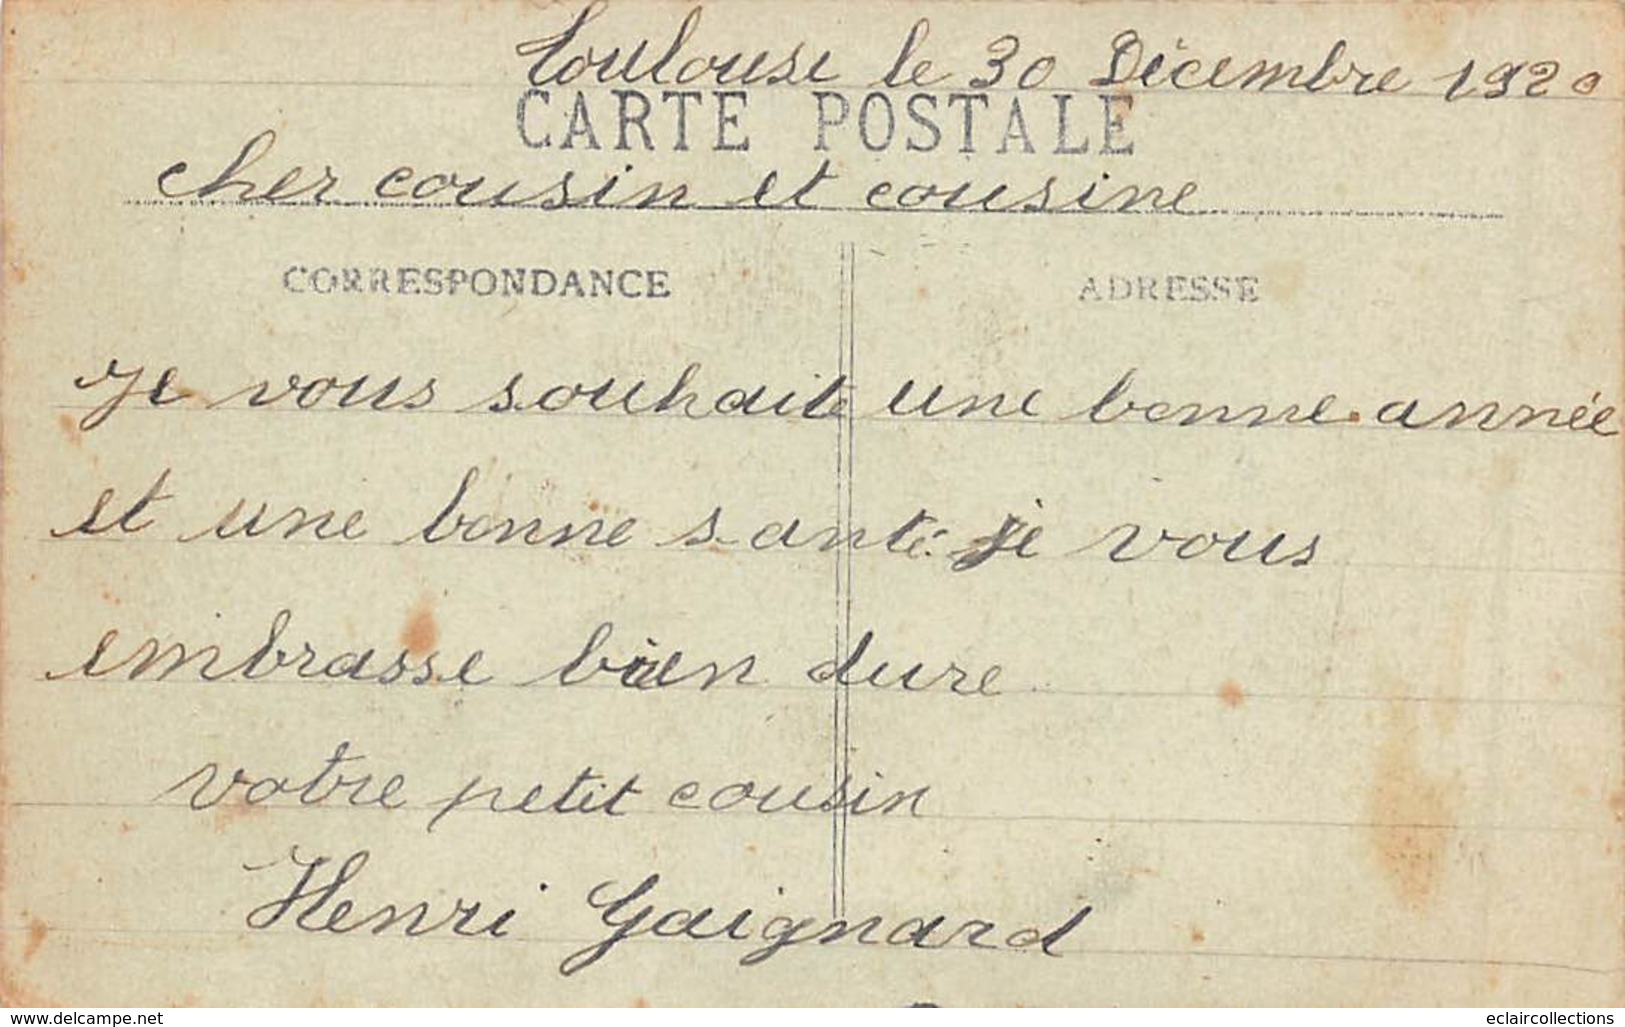 Toulouse le 30 Décembre 1920
CARTE POSTALE
cher cousin et cousine
CORRESPONDANCE
ADRESSE
Je vous souhaite une bonne année
et une bonne santé. je vous
embrasse bien dure
votre petit cousin
Henri Gaignard
www.delcampe.net
eclaircollections